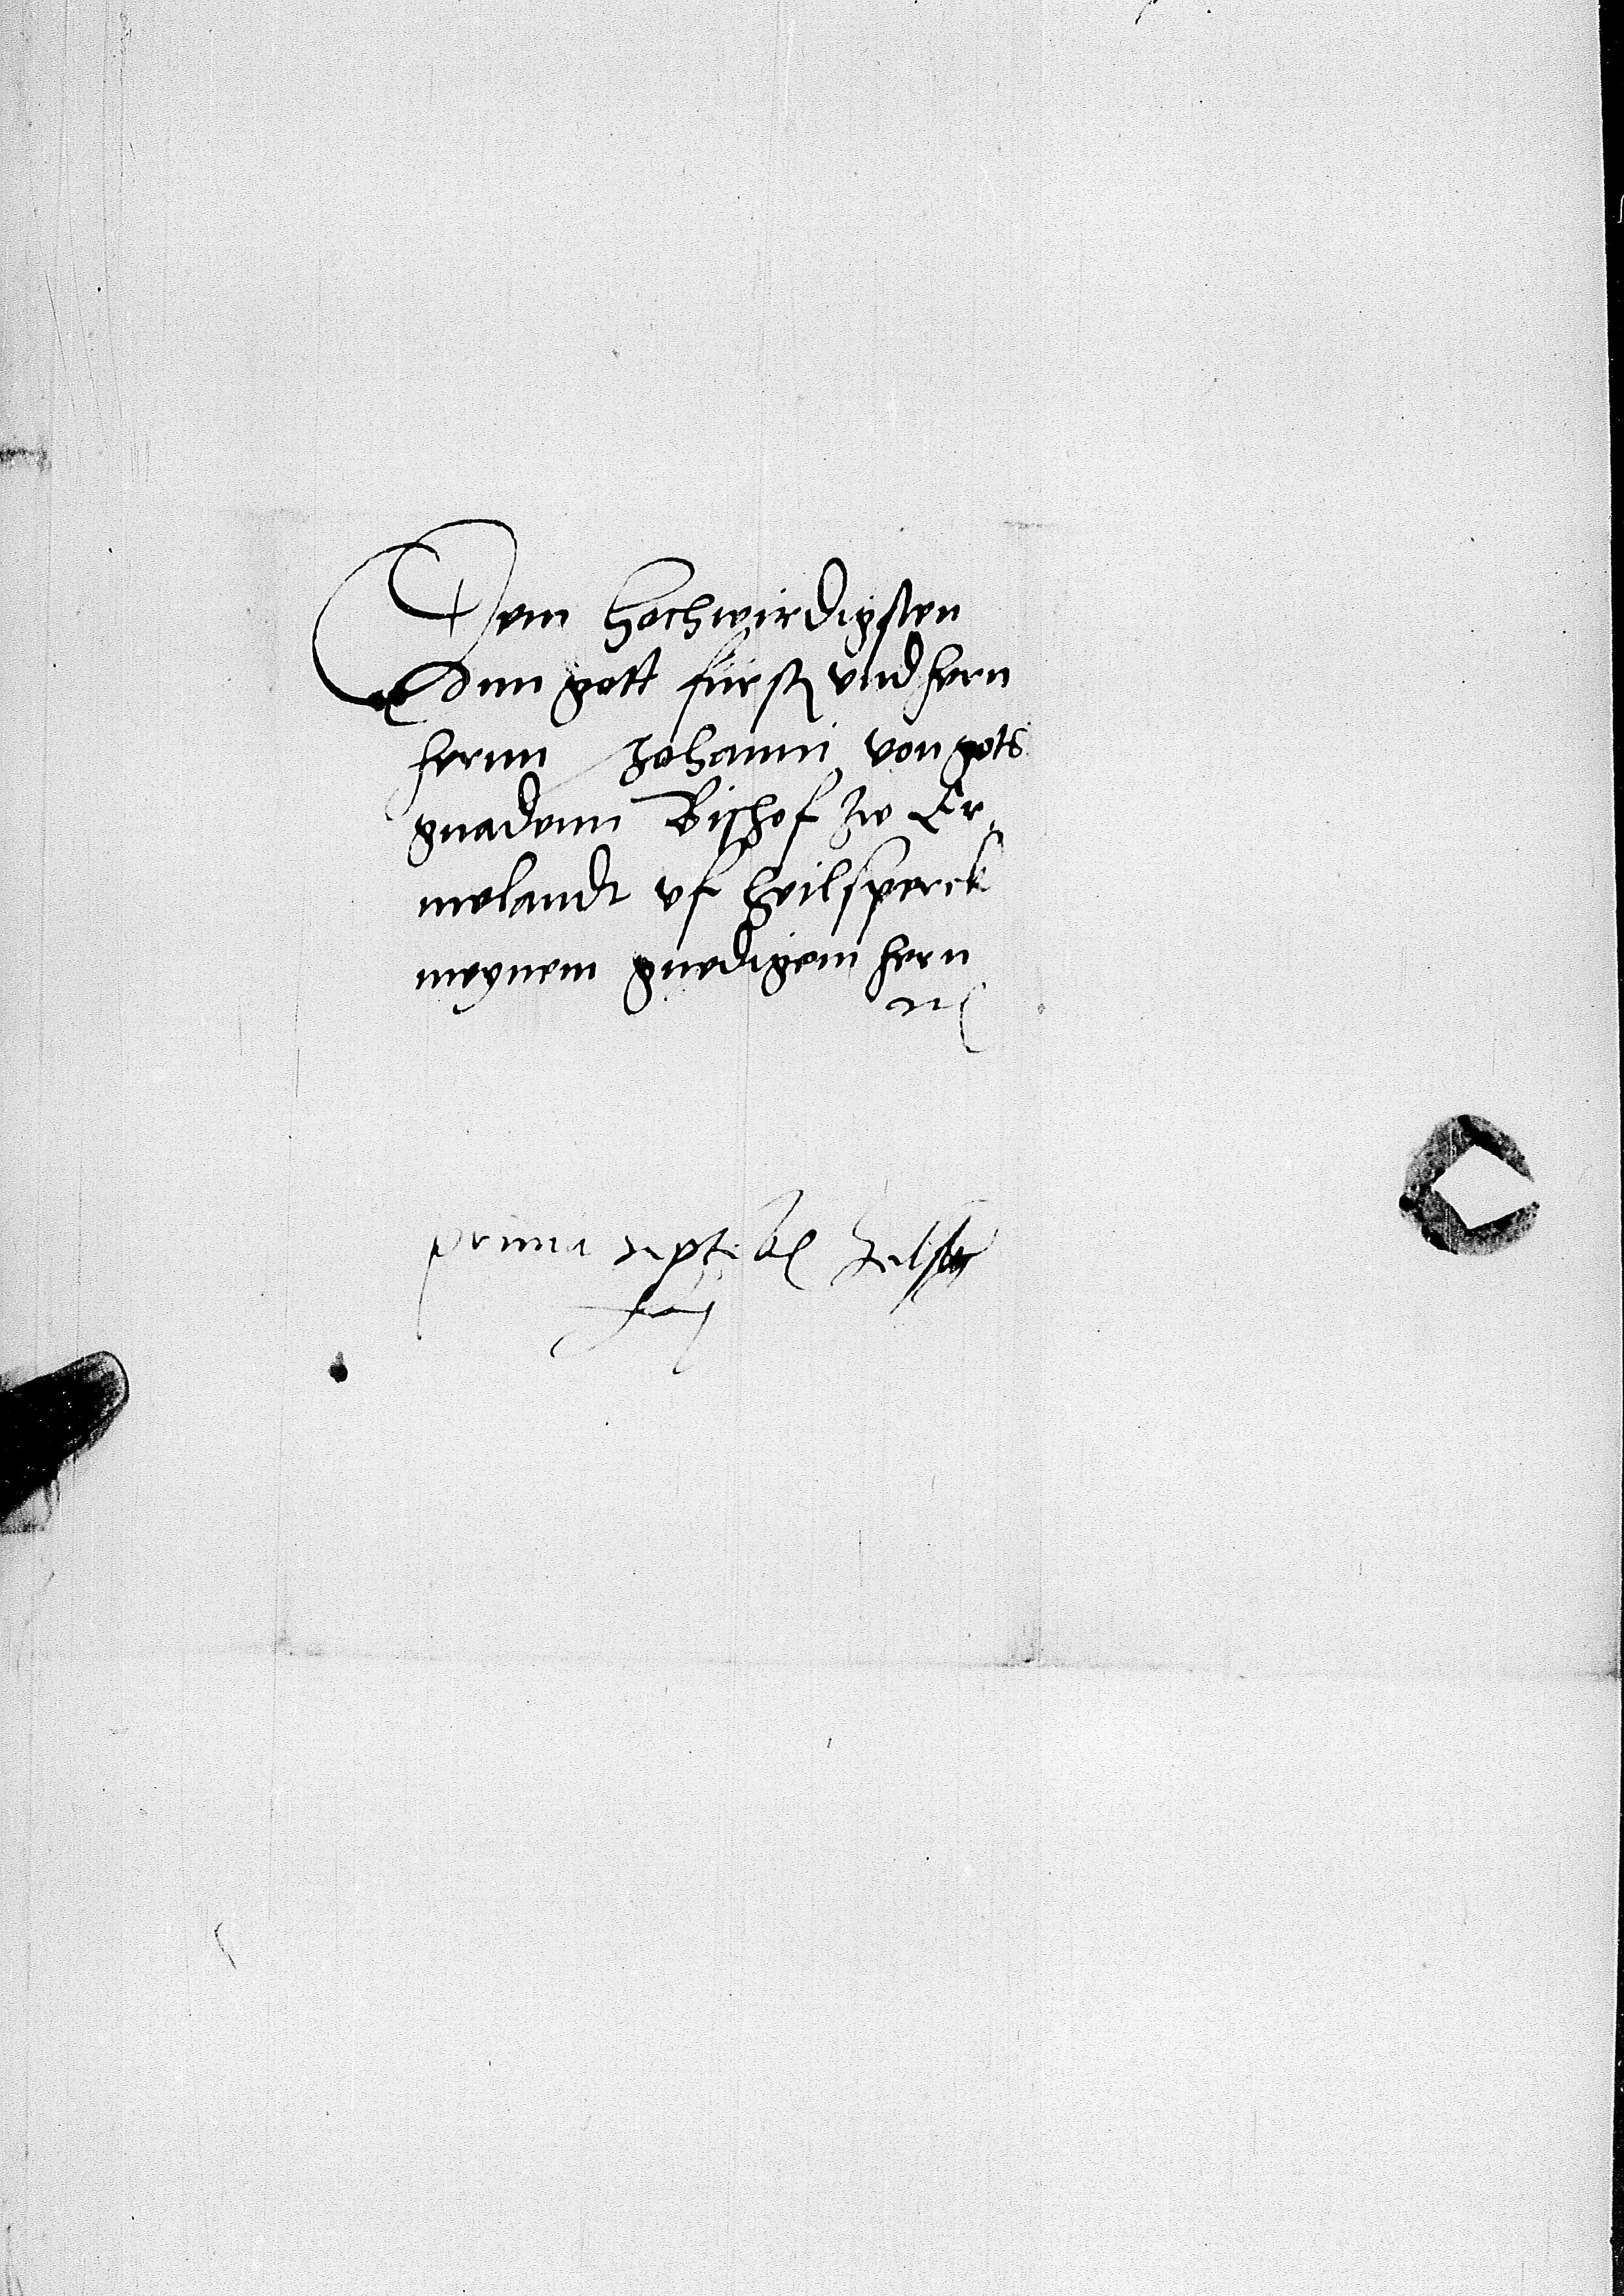 Dem Hochwirdigsten
Inn gott fursten vnd hern
hernn Johanni von gots
gnadenn Bischof zw Er,
melandt vf Heilsperck
meynem gnedigem hern
prima Septebr